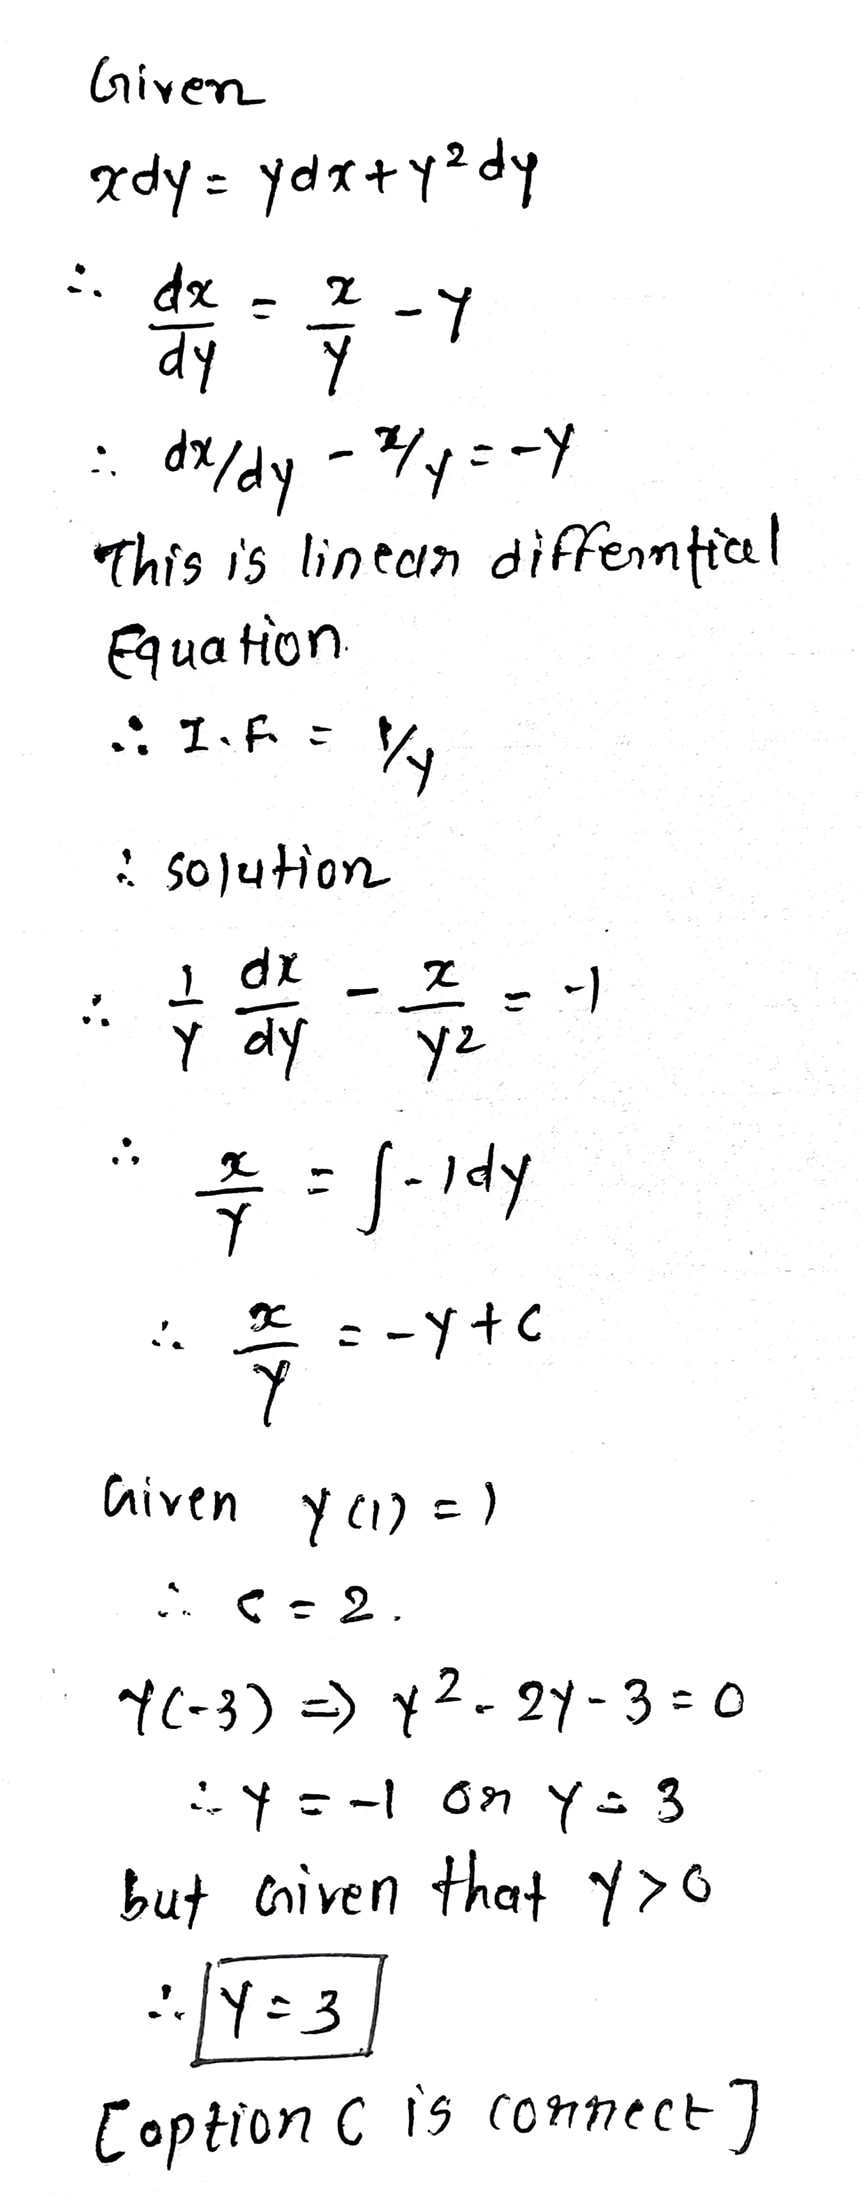 Given
xdy = ydx + y² dy
∴ dx/dy = x/y - y
∴ dx/dy - x/y = -y
This is linear differntial
Equation.
∴ I.F. = 1/y
∴ solution
∴ 1/y dx/dy - x/y² = -1
∴ x/y = ∫-1dy
∴ x/y = -y + c
Given y(1) = 1
∴ c = 2.
y(-3) ⇒ y² - 2y - 3 = 0
∴ y = -1 or y = 3
but Given that y > 0
∴ y = 3
[option C is correct]